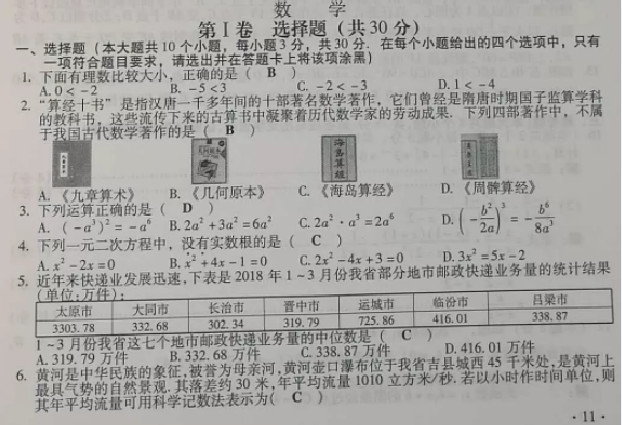 数 学
第 Ⅰ 卷 选择题 (共 30 分)
一、选择题 (本大题共 10 个小题, 每小题 3 分, 共 30 分. 在每个小题给出的四个选项中, 只有
一项符合题目要求, 请选出并在答题卡上将该项涂黑)
1. 下面有理数比较大小, 正确的是 ( B )
A. 0<-2 B. -5<3 C. -2<-3 D. 1<-4
2. “算经十书” 是指汉唐一千多年间的十部著名数学著作, 它们曾经是隋唐时期国子监算学科
的教科书, 这些流传下来的古算书中凝聚着历代数学家的劳动成果. 下列四部著作中, 不属
于我国古代数学著作的是 ( B )
海岛算经
A. 《九章算术》 B. 《几何原本》 C. 《海岛算经》 D. 《周髀算经》
3. 下列运算正确的是 ( D )
A. (-a³)²=-a⁶ B. 2a²+3a²=6a² C. 2a²·a³=2a⁶ D. (-b²/2a)³=-b⁶/8a³
4. 下列一元二次方程中, 没有实数根的是 ( C )
A. x²-2x=0 B. x²+4x-1=0 C. 2x²-4x+3=0 D. 3x²=5x-2
5. 近年来快递业发展迅速, 下表是 2018 年 1~3 月份我省部分地市邮政快递业务量的统计结果
(单位: 万件):
太原市 大同市 长治市 晋中市 运城市 临汾市 吕梁市
3303.78 332.68 302.34 319.79 725.86 416.01 338.87
1~3 月份我省这七个地市邮政快递业务量的中位数是 ( C )
A. 319.79 万件 B. 332.68 万件 C. 338.87 万件 D. 416.01 万件
6. 黄河是中华民族的象征, 被誉为母亲河, 黄河壶口瀑布位于我省吉县城西 45 千米处, 是黄河上
最具气势的自然景观. 其落差约 30 米, 年平均流量 1010 立方米/秒. 若以小时作时间单位, 则
其年平均流量可用科学记数法表示为( C )
· 11 ·